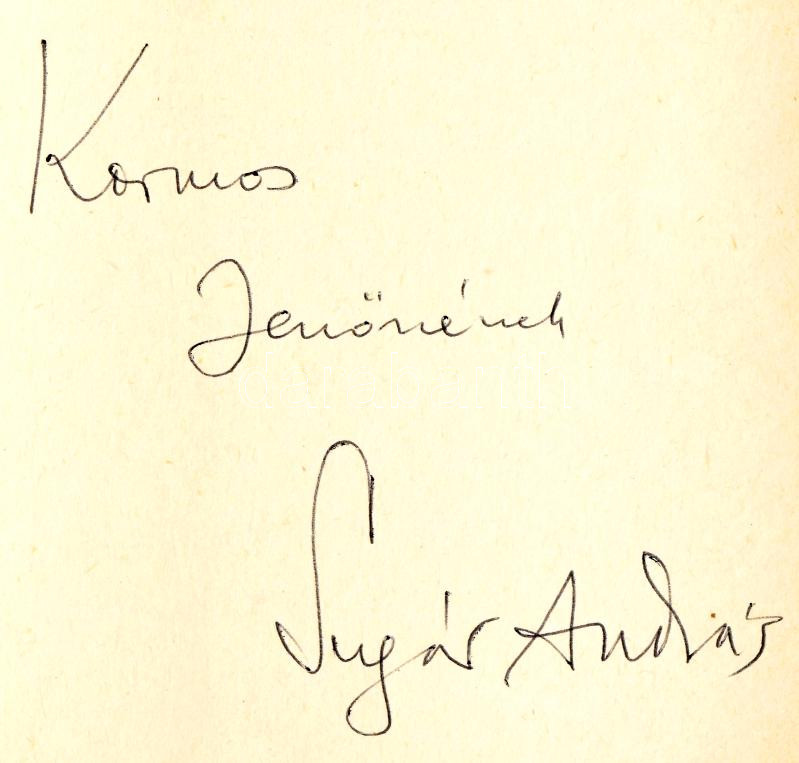 Kormos
Jenőnének
Sugár András